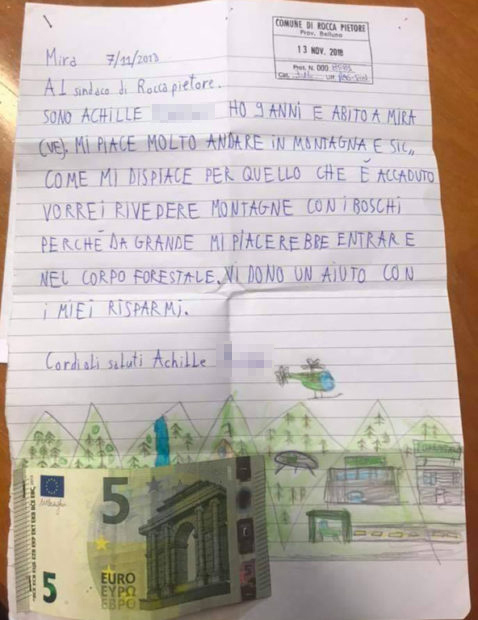 COMUNE DI ROCCA PIETORE
Prov. Belluno
13 NOV. 2018
Prot. N. 000
Cat.
Mira 7/11/2013
Al sindaco di Rocca pietore.
SONO ACHILLE HO 9 ANNI E ABITO A MIRA
(VE). MI PIACE MOLTO ANDARE IN MONTAGNA E SIC„
COME MI DISPIACE PER QUELLO CHE È ACCADUTO
VORREI RIVEDERE MONTAGNE CON I BOSCHI
PERCHÉ DA GRANDE MI PIACEREBBE ENTRARE
NEL CORPO FORESTALE. VI DONO UN AIUTO CON
I MIEI RISPARMI.
Cordiali saluti Achille
5
5
EURO
ΕΥΡΩ
ЕВРО